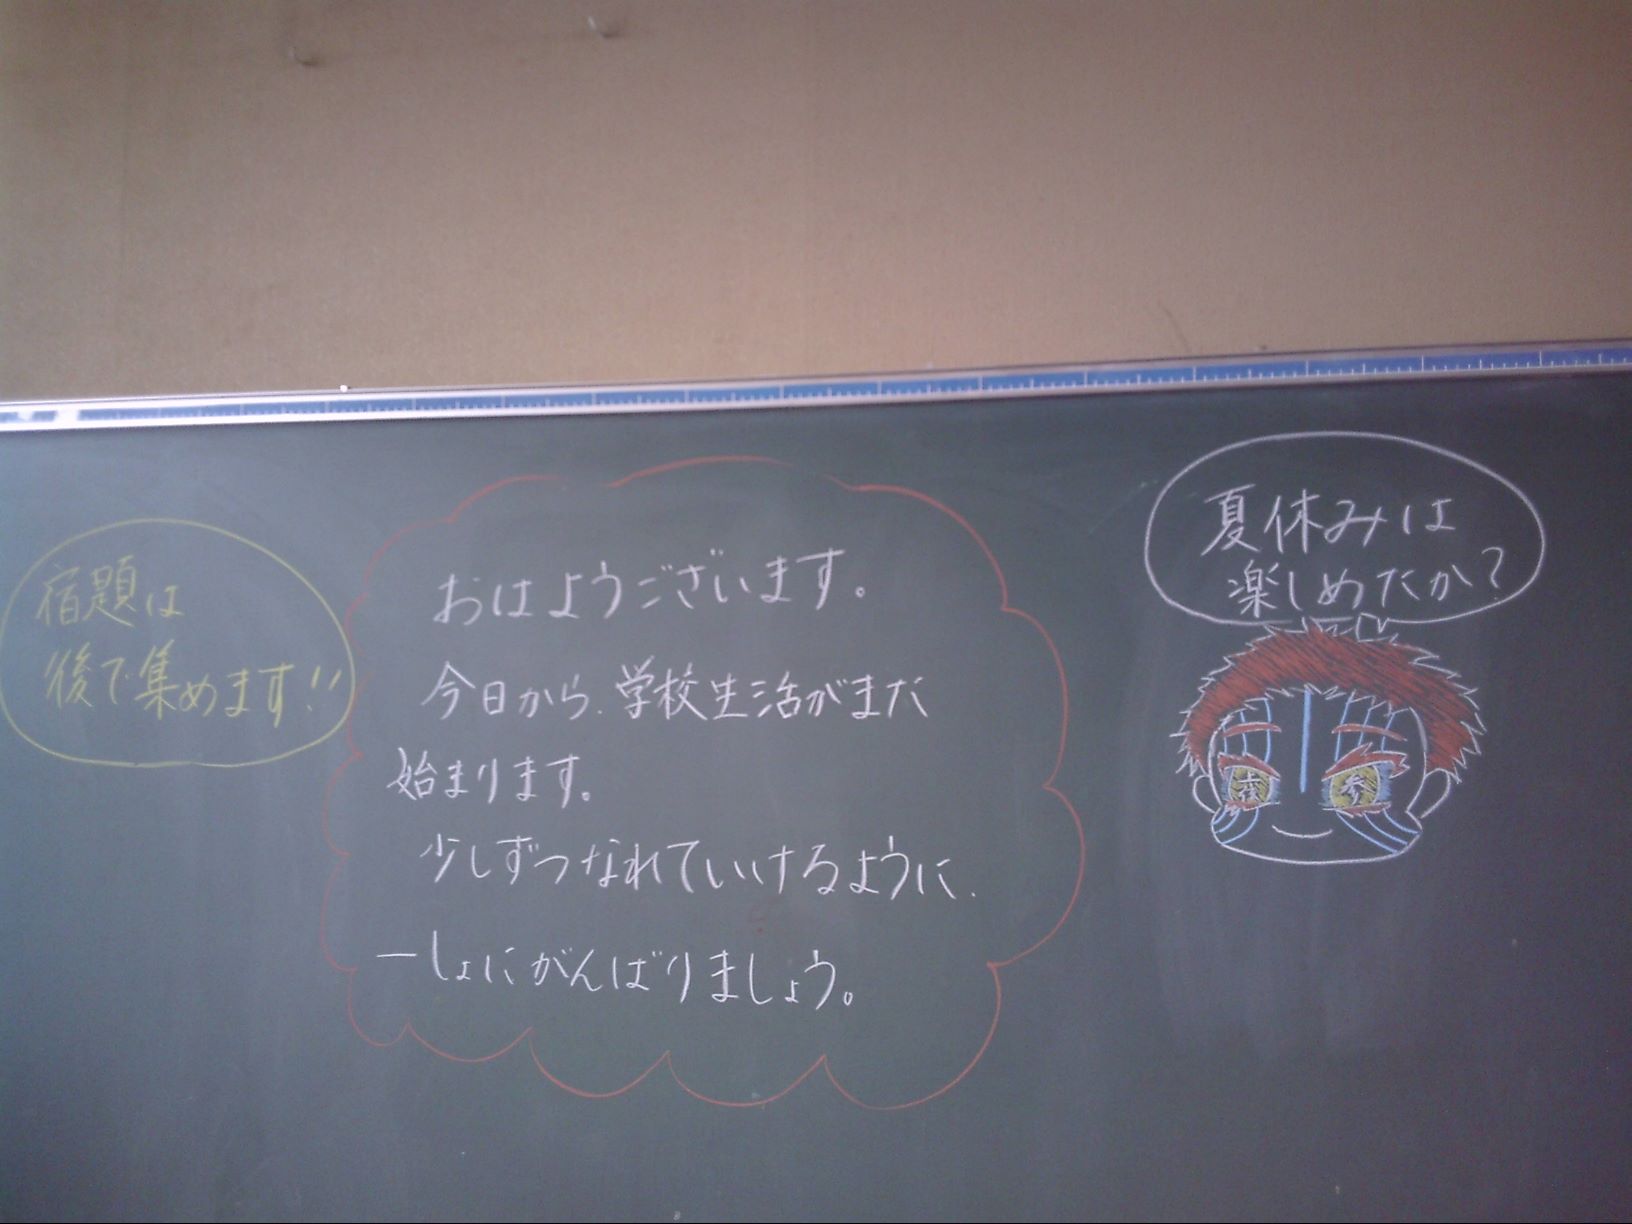 宿題は
後で集めます!!
おはようございます。
今日から、学校生活がまた
始まります。
少しずつなれていけるように、
一しょにがんばりましょう。
夏休みは
楽しめたか?
上弦
参